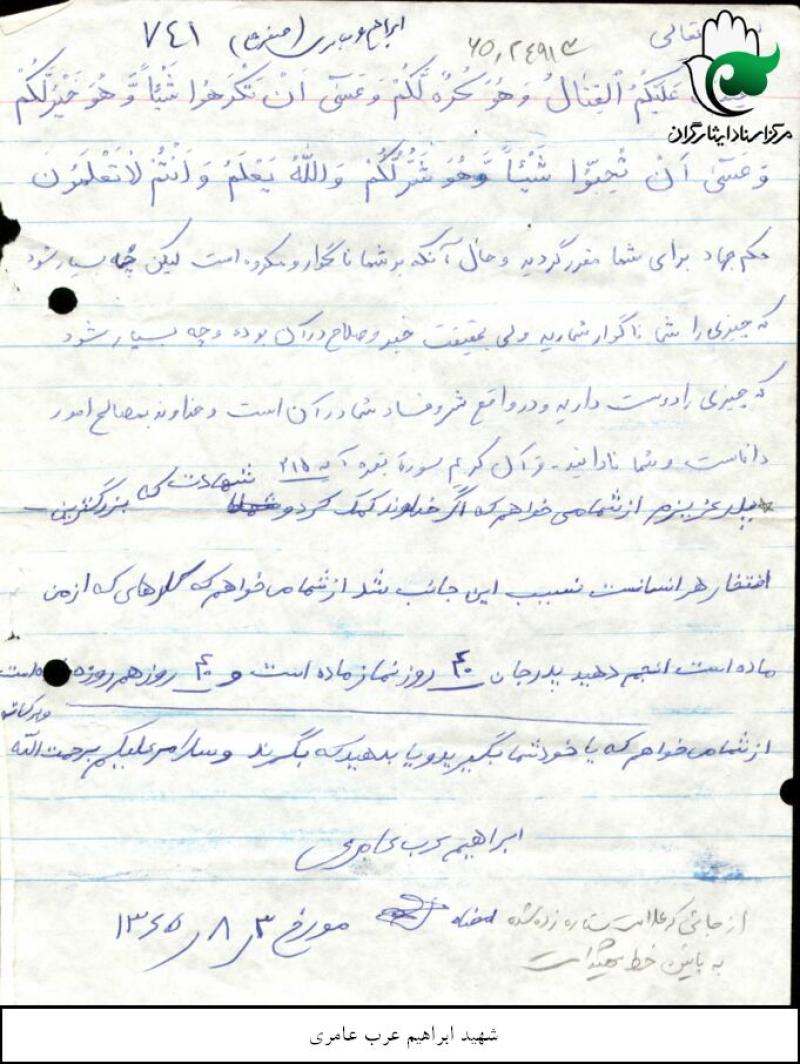 تعالی
ابراهیم عرب عامری ۷٤۱
مرکز اسناد ایثارگران
عَلَیْکُمُ الْقِتالُ وَ هُوَ کُرْهٌ لَّکُمْ وَ عَسَیٰ اَنْ تَکْرَهُوا شَیْئاً وَّ هُوَ خَیْرٌ لَّکُمْ
وَ عَسَیٰ اَنْ تُحِبُّوا شَیْئاً وَّ هُوَ شَرٌّ لَّکُمْ وَاللهُ یَعْلَمُ وَ اَنْتُمْ لاٰ تَعْلَمُونَ
حکم جهاد برای شما مقرر گردید و حال آنکه بر شما ناگوار و مکروه است لیکن چه بسیار شود
که چیزی را شما ناگوار شمارید ولی بحقیقت خیر و صلاح در آن بوده و چه بسیار شود
که چیزی را دوست دارید و در واقع شر و فساد شما در آن است و خداوند بمصالح امور
داناست و شما نادانید - قرآن کریم سورهٔ بقره آیه ۲۱۵
پدر عزیزم از شما می خواهم که اگر خداوند کمک کرد و شهادت که بزرگترین
افتخار هر انسانست نسیب این جانب شد از شما می خواهم که کارهای که از من
ماده است انجم دهید پدر جان ٤۰ روز نماز ماده است و ٤۰ روز هم روزه است
از شما می خواهم که یا خود شما بگیرید و یا بدهید که بگیرند و سلام علیکم برحمت الله
و برکاته
ابراهیم عرب عامری
مورخ ۳ / ۸ / ۱۳٦۵
از جائی که علامت ستاره زده شده امضاء
به پایین خط شهید است
شهید ابراهیم عرب عامری